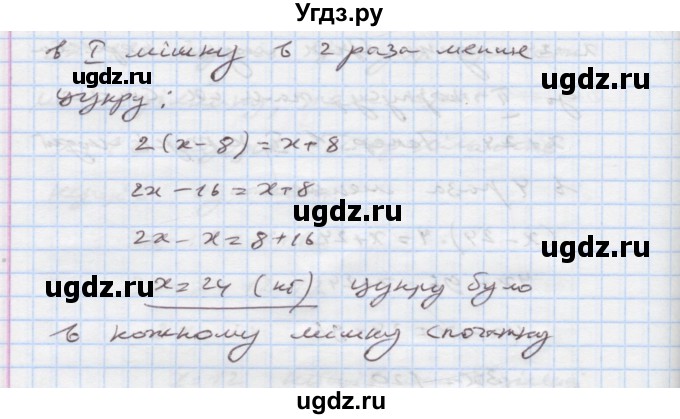 Угдз.ру
в I мішку в 2 раза менше
ugdz.ru ugdz.ru
цукру:
2(x-8)=x+8
ugdz.ru
2x-16=x+8
ugdz.ru
2x-x=8+16
ugdz.ru
x=24 (кг) цукру було
ugdz.ru
в кожному мішку спочатку
ugdz.ru